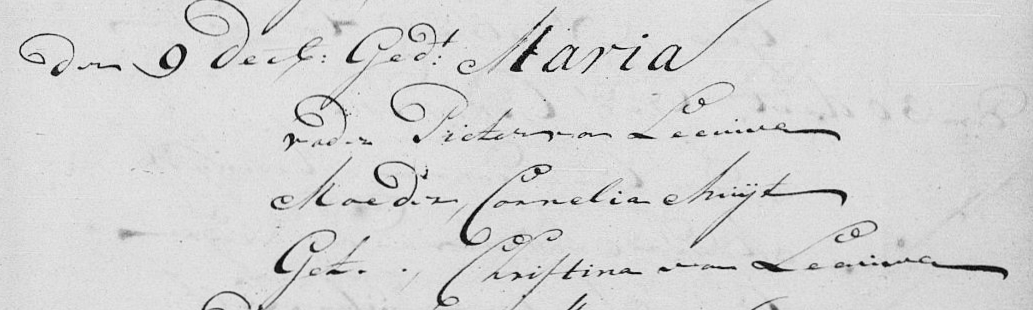 Den 9 Decb: Gedt: Maria
vader Pieter van Leeuwe
Moeder, Cornelia Muijt
Get. ., Christina van Leeuwe